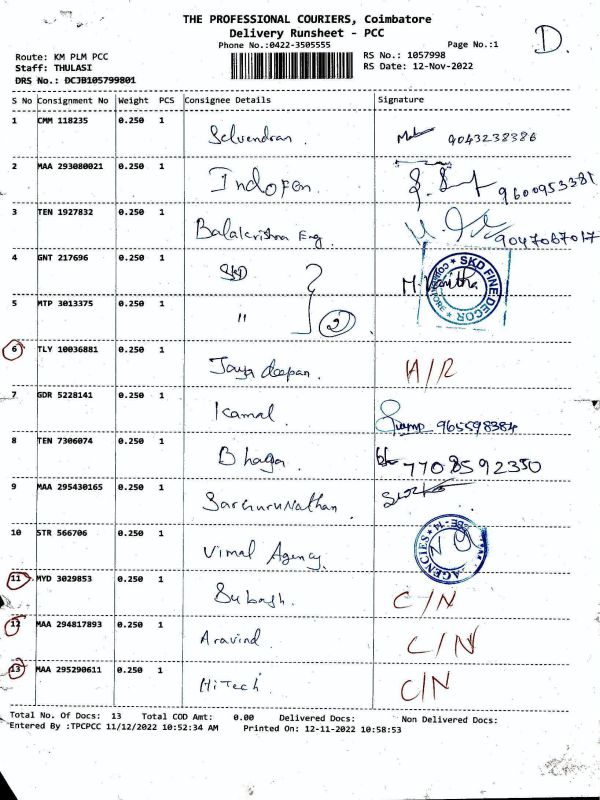 THE PROFESSIONAL COURIERS, Coimbatore
Delivery Runsheet - PCC
Phone No.:0422-3505555 Page No.:1
D.
Route: KM PLM PCC RS No.: 1057998
Staff: THULASI RS Date: 12-Nov-2022
DRS No.: DCJB105799801
S No Consignment No Weight PCS Consignee Details Signature
1 CMM 118235 0.250 1 Selvendran. 9043238386
2 MAA 293080021 0.250 1 Indofen. 9600953381
3 TEN 1927832 0.250 1 Balakrishna Eng. 9047067017
4 GNT 217696 0.250 1 SKD M. Vanitha
SKD FINE DECOR
COIMBATORE
5 MTP 3013375 0.250 1 " 2
6 TLY 10036881 0.250 1 Jaya deepan. H/R
7 GDR 5228141 0.250 1 Kamal. 965598384
8 TEN 7306074 0.250 1 Bhaga. 7708592350
9 MAA 295430165 0.250 1 SarGuruNathan.
10 STR 566706 0.250 1 Vimal Agency.
AGENCIES
11 MYD 3029853 0.250 1 Subash. C/N
12 MAA 294817893 0.250 1 Aravind. C/N
13 MAA 295290611 0.250 1 HiTech C/N
Total No. Of Docs: 13 Total COD Amt: 0.00 Delivered Docs: Non Delivered Docs:
Entered By :TPCPCC 11/12/2022 10:52:34 AM Printed On: 12-11-2022 10:58:53